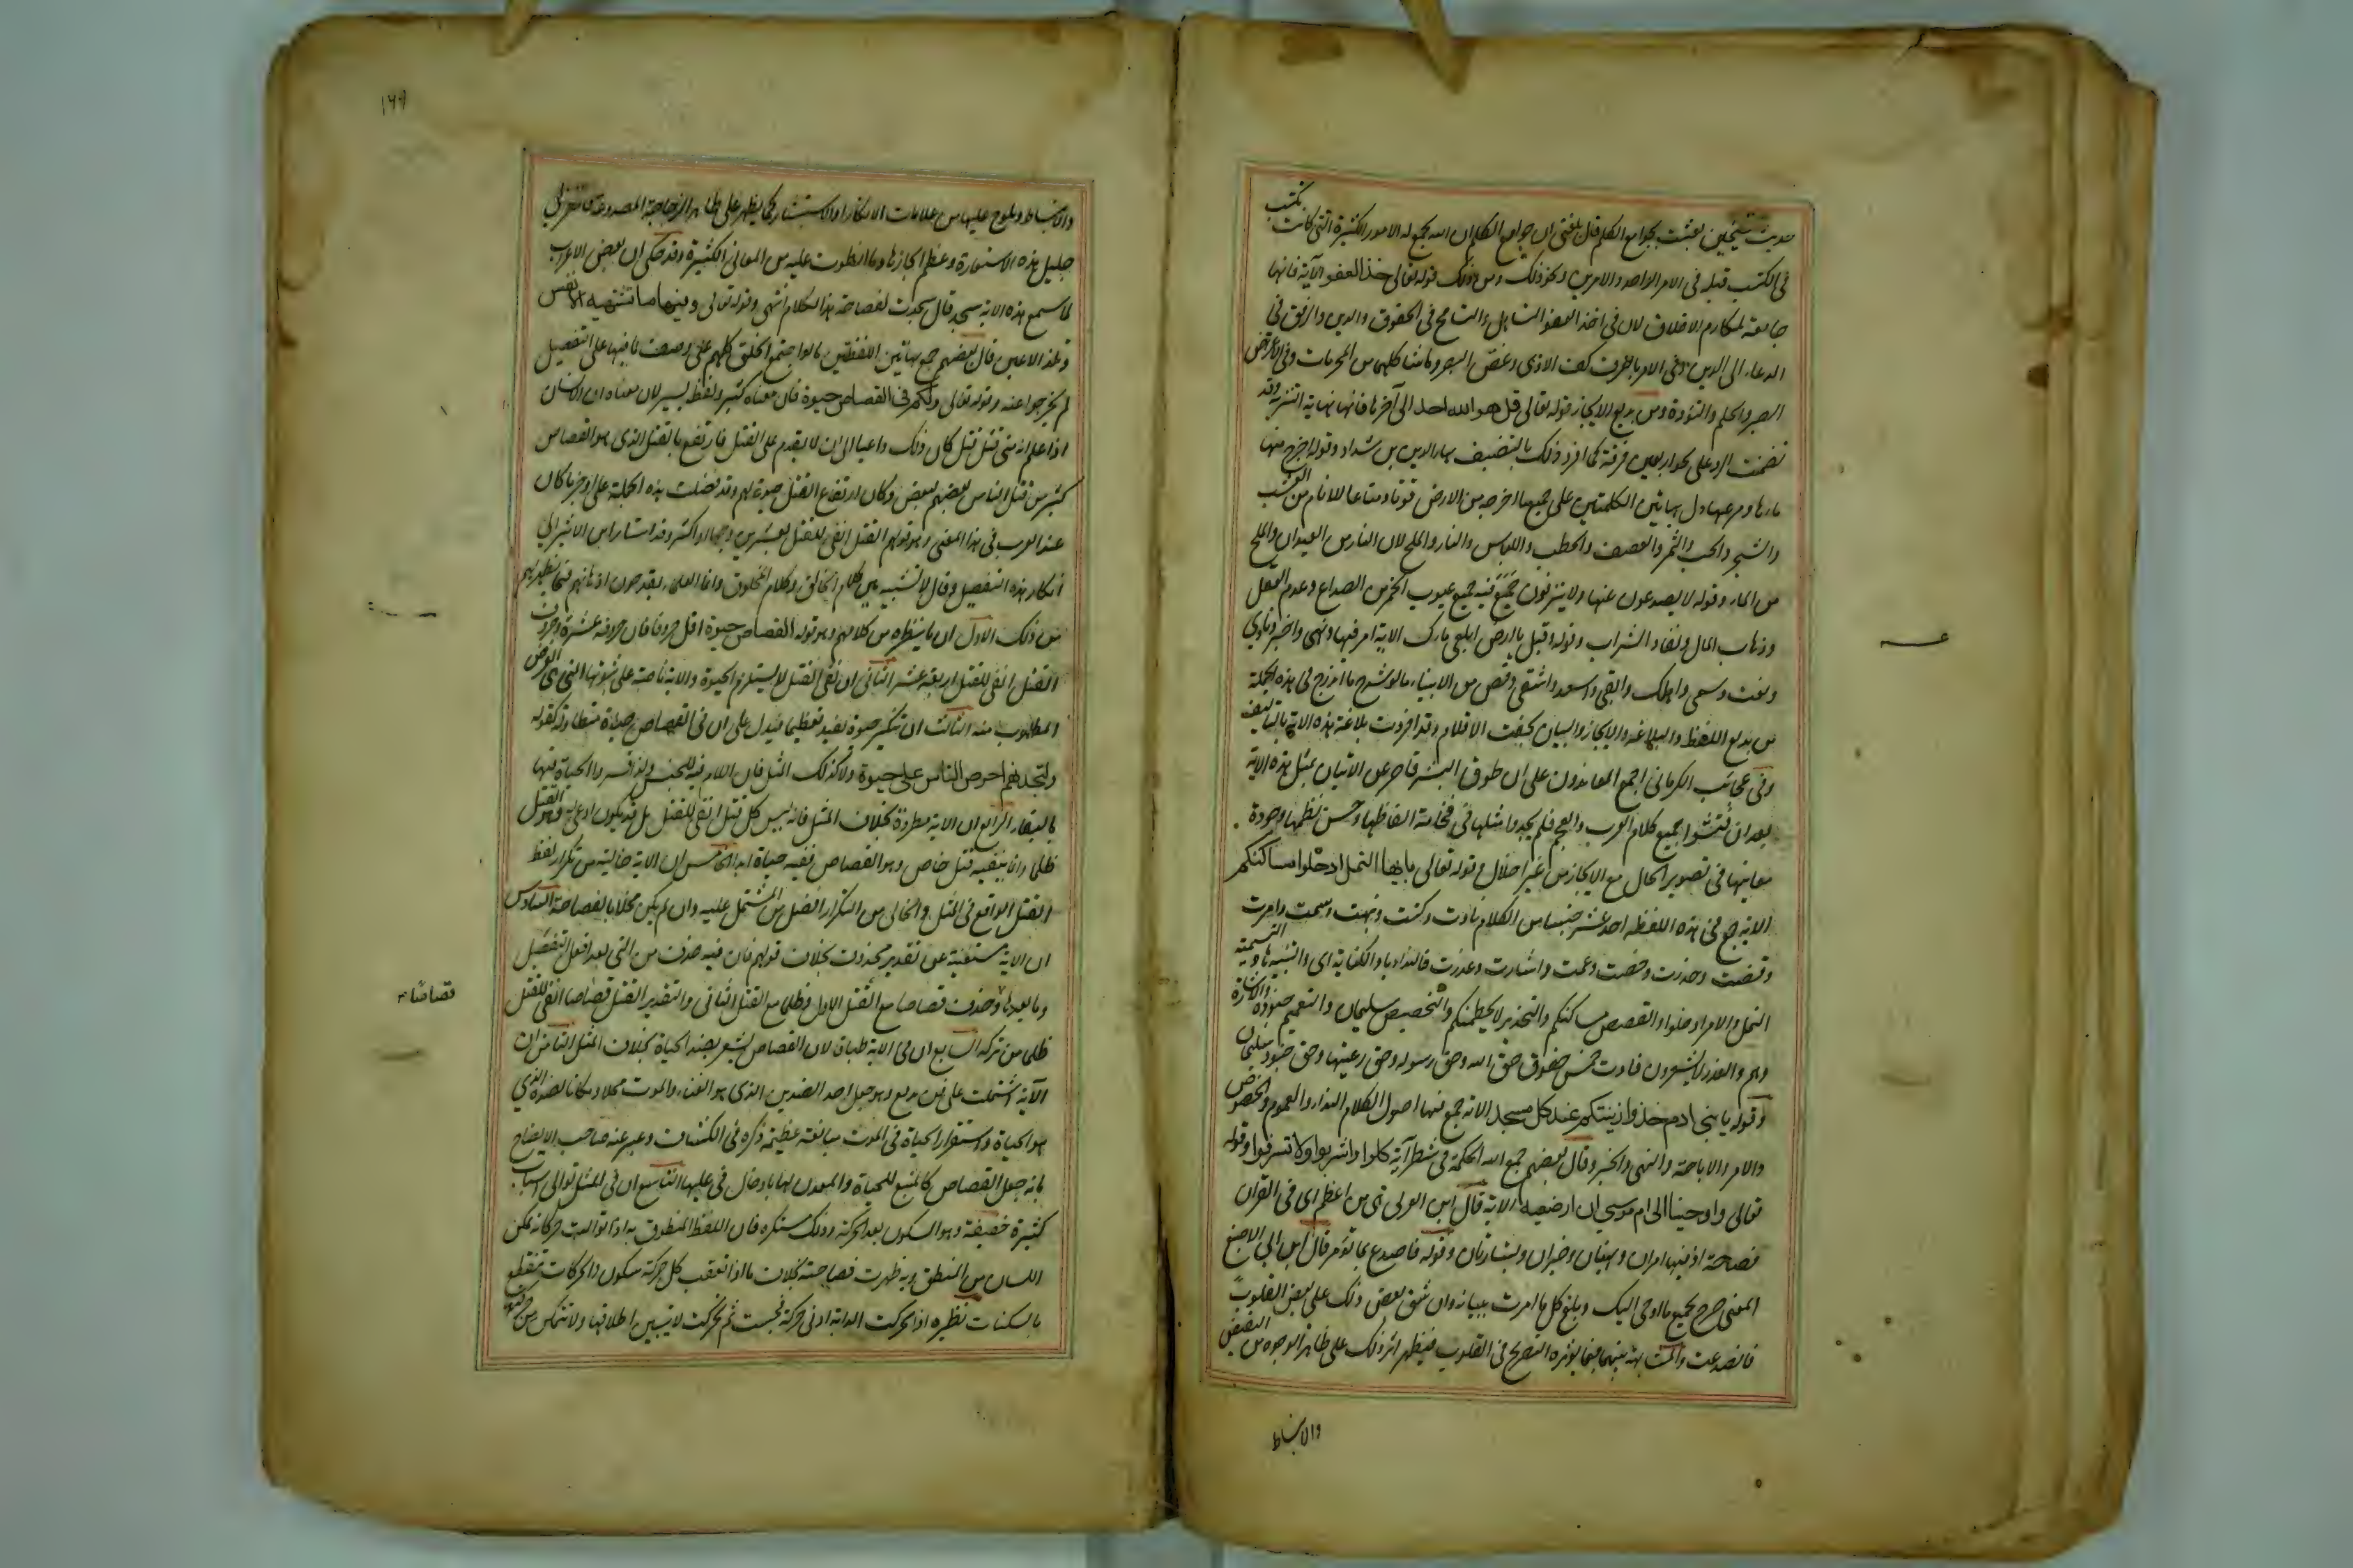 حديث شيخين بعثت بجوامع الكلم قال بلغنى ان جوامع الكلم ان الله يجمع له الامور الكثيرة التى كانت تكتب
فى الكتب قبله فى الامر الواحد والامرين ونحو ذلك ومن ذلك قوله تعالى خذ العفو الآية فانها
جامعة لمكارم الاخلاق لان فى اخذ العفو التساهل والتسامح فى الحقوق واللين والرفق فى
الدعاء الى الدين وفى الامر بالعرف كف الاذى وغض البصر وما شاكلهما من المحرمات وفى الاعراض
الصبر والحلم والتؤدة ومن بديع الايجاز قوله تعالى قل هو الله احد الى آخرها فانها نهاية التنزيه وقد
تضمنت الرد على نحو اربعين فرقة كما افرد ذلك بالتصنيف بهاء الدين بن شداد وقوله اخرج منها
ماءها ومرعيها دل بهاتين الكلمتين على جميع ما اخرجه من الارض قوتا ومتاعا للانام من العشب
والشجر والحب والثمر والعصف والحطب واللباس والنار والملح لان النار من العيدان والملح
من الماء وقوله لا يصدعون عنها ولا ينزفون جمع فيه جميع عيوب الخمر من الصداع وعدم العقل
وذهاب المال ونفاد الشراب وقوله وقيل يا ارض ابلعى ماءك الاية امر فيها ونهى واخبر ونادى
ونعت وسمى واهلك وابقى واسعد واشقى وقص من الانباء ما لو شرح ما اندرج فى هذه الجملة
من بديع اللفظ والبلاغة والايجاز والبيان لجفت الاقلام وقد افردت بلاغة هذه الاية بالتاليف
وفى عجائب الكرمانى اجمع المعاندون على ان طوق البشر قاصر عن الاتيان بمثل هذه الاية
بعد ان فتشوا جميع كلام العرب والعجم فلم يجدوا مثلها فى فخامة الفاظها وحسن نظمها وجودة
معانيها فى تصوير الحال مع الايجاز من غير اخلال وقوله تعالى يا ايها النمل ادخلوا مساكنكم
الاية جمع فى هذه اللفظة احد عشر جنسا من الكلام نادت وكنت ونبهت وسمت وامرت
وقصت وحذرت وخصت وعمت واشارت وعذرت فالنداء يا والكناية اى والتنبيه ها والتسمية
النمل والامر ادخلوا والقصص مساكنكم والتحذير لا يحطمنكم والتخصيص سليمان والتعميم جنوده والاشارة
وهم والعذر لا يشعرون فادت خمس حقوق حق الله وحق رسوله وحق رعيتها وحق جنود سليمان
وقوله يا بنى ادم خذوا زينتكم عند كل مسجد الاية جمع فيها اصول الكلام النداء والعموم والخصوص
والامر والاباحة والنهى والخبر وقال بعضهم جمع الله الحكمة فى شطر آية كلوا واشربوا ولا تسرفوا وقوله
تعالى واوحينا الى ام موسى ان ارضعيه الاية قال ابن العربى هى من اعظم اى فى القران
فصاحة اذ فيها امران ونهيان وخبران وبشارتان وقوله فاصدع بما تؤمر قال ابن ابى الاصبع
المعنى صرح بجميع ما اوحى اليك وبلغ كل ما امرت ببيانه وان شق بعض ذلك على بعض القلوب
فانصدعت والمشابهة بينهما فيما يؤثره التصريح فى القلوب فيظهر اثر ذلك على ظاهر الوجوه من التقبض
والانبساط
١٦٩
والانبساط ويلوح عليها من علامات الانكار او الاستبشار كما يظهر على ظاهر الزجاجة المصدوعة فانظر الى
جليل هذه الاستعارة وعظم ايجازها وما انطوت عليه من المعانى الكثيرة وقد حكى ان بعض الاعراب
لما سمع هذه الاية سجد وقال سجدت لفصاحة هذا الكلام انتهى وقوله تعالى وفيها ما تشتهيه الانفس
وتلذ الاعين قال بعضهم جمع بهاتين اللفظتين ما لو اجتمع الخلق كلهم على وصف ما فيها على التفصيل
لم يخرجوا عنه وقوله تعالى ولكم فى القصاص حيوة فان معناه كثير ولفظه يسير لان معناه ان الانسان
اذا علم انه متى قتل قتل كان ذلك داعيا الى ان لا يقدم على القتل فارتفع بالقتل الذى هو القصاص
كثير من قتل الناس بعضهم لبعض وكان ارتفاع القتل حيوة لهم وقد فضلت هذه الجملة على اوجز ما كان
عند العرب فى هذا المعنى وهو قولهم القتل انفى للقتل بعشرين وجها او اكثر وقد اشار ابن الاثير الى
انكار هذه التفضيل وقال لا تشبيه بين كلام الخالق وكلام المخلوق وانما العلماء يقدحون اذهانهم فيما يظهر لهم
من ذلك الاول ان ما يناظره من كلامهم وهو قوله القصاص حيوة اقل حروفا فان حروفه عشرة وحروف
القتل انفى للقتل اربعة عشر الثانى ان نفى القتل لا يستلزم الحيوة والاية ناصة على ثبوتها التى هى الغرض
المطلوب منه الثالث ان تنكير حيوة يفيد تعظيما فيدل على ان فى القصاص حياة متطاولة كقوله
ولتجدنهم احرص الناس على حيوة ولا كذلك المثل فان اللام فيه للجنس ولذا فسروا الحياة فيها
بالبقاء الرابع ان الاية مطردة بخلاف المثل فانه ليس كل قتل انفى للقتل بل قد يكون ادعى له وهو القتل
ظلما وانما ينفيه قتل خاص وهو القصاص ففيه حياة ابدا الخامس ان الاية خالية من تكرار لفظ
القتل الواقع فى المثل والخالى من التكرار افضل من المشتمل عليه وان لم يكن مخلا بالفصاحة السادس
ان الاية مستغنية عن تقدير محذوف بخلاف قولهم فان فيه حذف من التى بعد افعل التفضيل
وما بعدها وحذف قصاصا مع القتل الاول وظلما مع القتل الثانى والتقدير القتل قصاصا انفى للقتل
قصاصا
ظلما من تركه السابع ان فى الاية طباقا لان القصاص يشعر بضد الحياة بخلاف المثل الثامن ان
الآية اشتملت على فن بديع وهو جعل احد الضدين الذى هو الفناء والموت محلا ومكانا لضده الذى
هو الحياة واستقرار الحياة فى الموت مبالغة عظيمة ذكره فى الكشاف وعبر عنه صاحب الايضاح
بانه جعل القصاص كالمنبع للحياة والمعدن لها بادخال فى عليها التاسع ان فى المثل توالى اسباب
كثيرة خفيفة وهو السكون بعد الحركة وذلك مستكره فان اللفظ المنطوق به اذا توالت حركاته تمكن
اللسان من النطق وبه ظهرت فصاحته بخلاف ما اذا تعقب كل حركة سكون والحركات تنقطع
بالسكنات نظيره اذا تحركت الدابة ادنى حركة فحبست ثم تحركت لا تتبين اطلاقها ولا تتمكن من حركتها